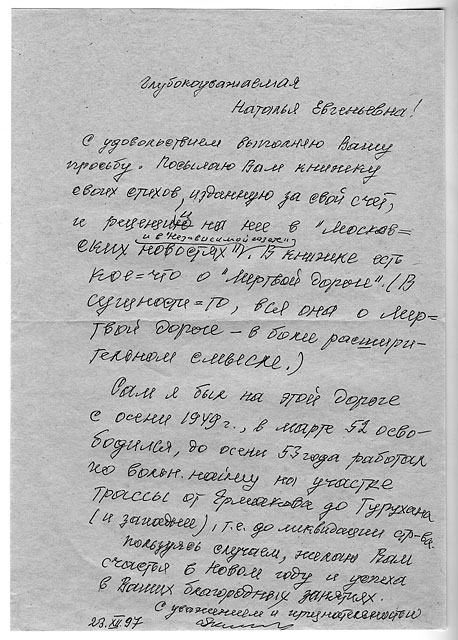 Глубокоуважаемая
Наталья Евгеньевна!
С удовольствием выполняю Вашу
просьбу. Посылаю Вам книжку
своих стихов, изданную за свой счет,
и рецензии на нее в "Москов=
и в "Независимой газете"
ских новостях". В книжке есть
кое=что о "Мертвой дороге". (В
сущности=то, вся она о Мер=
твой дороге – в более расшири-
тельном смысле.)
Сам я был на этой дороге
с осени 1949 г., в марте 52 осво-
бодился, до осени 53 года работал
по вольн. найму на участке
трассы от Ермакова до Турухана
(и западнее), т.е. до ликвидации стр-ва.
Пользуясь случаем, желаю Вам
счастья в Новом году и успеха
в Ваших благородных занятиях.
С уважением и признательностью
23.XII 97